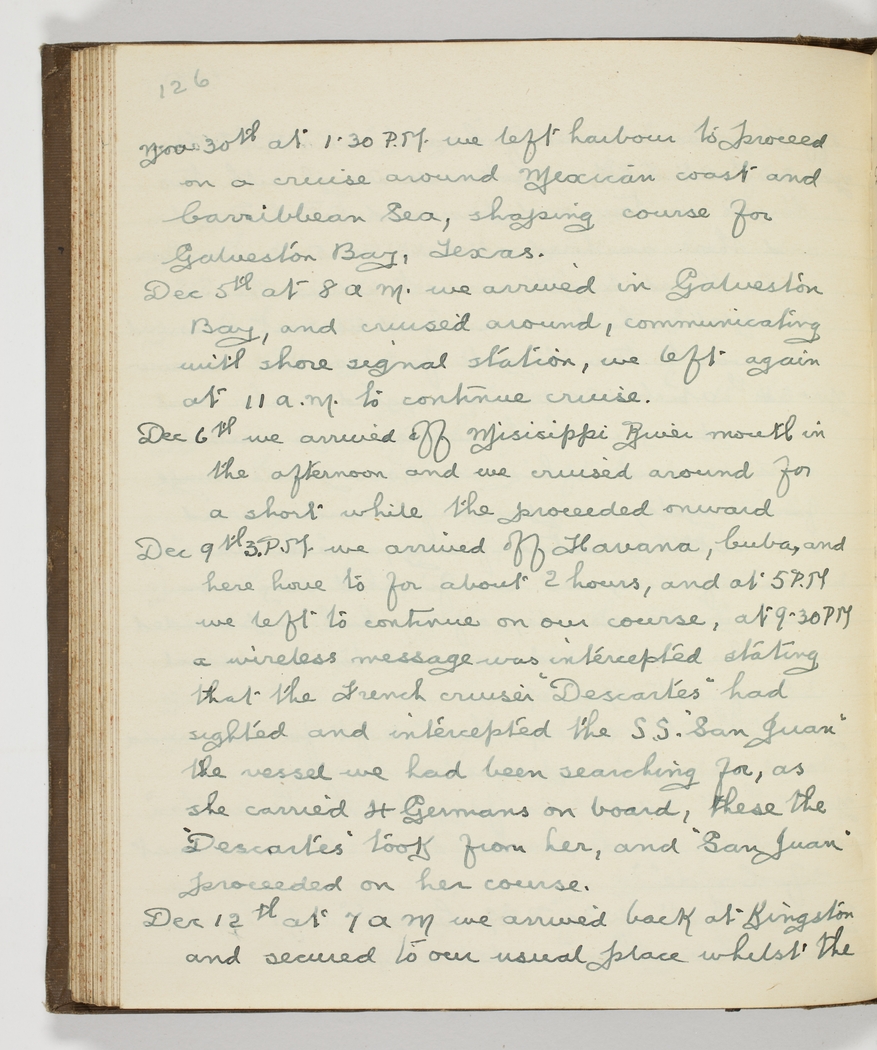 126
Nov 30th at 1.30 P.M. we left harbour to proceed
on a cruise around Mexican coast and
Carribbean Sea, shaping course for
Galveston Bay, Texas.
Dec 5th at 8 a m. we arrived in Galveston
Bay, and cruised around, communicating
with shore signal station, we left again
at 11 a.m. to continue cruise.
Dec 6th we arrived off Misisippi River mouth in
the afternoon and we cruised around for
a short while the proceeded onward
Dec 9th 3.P.M. we arrived off Havana, Cuba, and
here hove to for about 2 hours, and at 5 P.M
we left to continue on our course, at 9-30 PM
a wireless message was intercepted stating
that the French cruiser "Descartes" had
sighted and intercepted the S.S. "San Juan"
the vessel we had been searching for, as
she carried 4 Germans on board, these the
"Descartes" took from her, and "San Juan"
proceeded on her course.
Dec 12th at 7 a m we arrived back at Kingston
and secured to our usual place whilst the